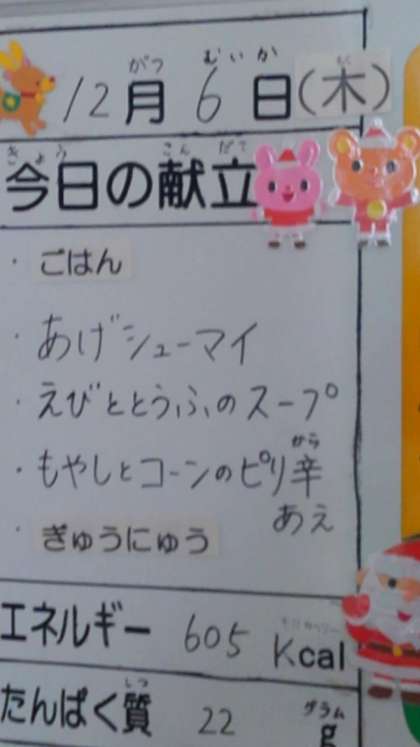 がつ むいか もく
12月6日(木)
きょう こんだて
今日の献立
・ごはん
・あげシューマイ
・えびととうふのスープ
から
・もやしとコーンのピリ辛
あえ
・ぎゅうにゅう
キロカロリー
エネルギー 605 Kcal
しつ グラム
たんぱく質 22 g